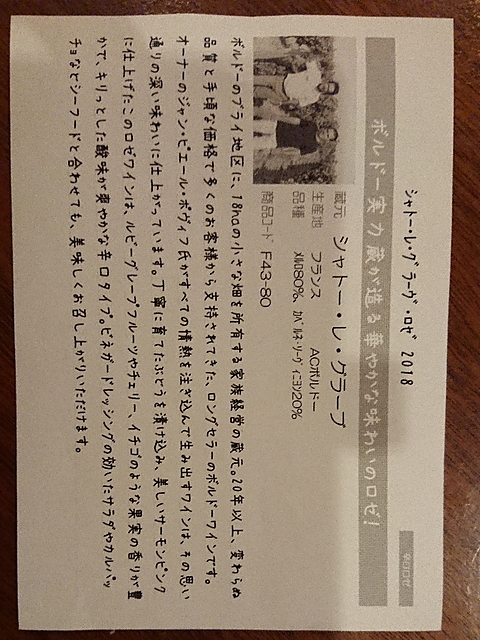 シャトー・レ・グラーヴ・ロゼ 2018
辛口ロゼ
ボルドー実力蔵が造る華やかな味わいのロゼ!
蔵元 シャトー・レ・グラーブ
生産地 フランス ACボルドー
品種 メルロ80%、カベルネ・ソーヴィニヨン20%
商品コード F43-80
ボルドーのブライ地区に、18haの小さな畑を所有する家族経営の蔵元。20年以上、変わらぬ
品質と手頃な価格で多くのお客様から支持されてきた、ロングセラーのボルドーワインです。
オーナーのジャン・ピエール・ポヴィフ氏がすべての情熱を注ぎ込んで生み出すワインは、その思い
通りの深い味わいに仕上がっています。丁寧に育てたぶどうを漬け込み、美しいサーモンピンク
に仕上げたこのロゼワインは、ルビーグレープフルーツやチェリー、イチゴのような果実の香りが豊
かで、キリっとした酸味が爽やかな辛口タイプ。ビネガードレッシングの効いたサラダやカルパッ
チョなどシーフードと合わせても、美味しくお召し上がりいただけます。